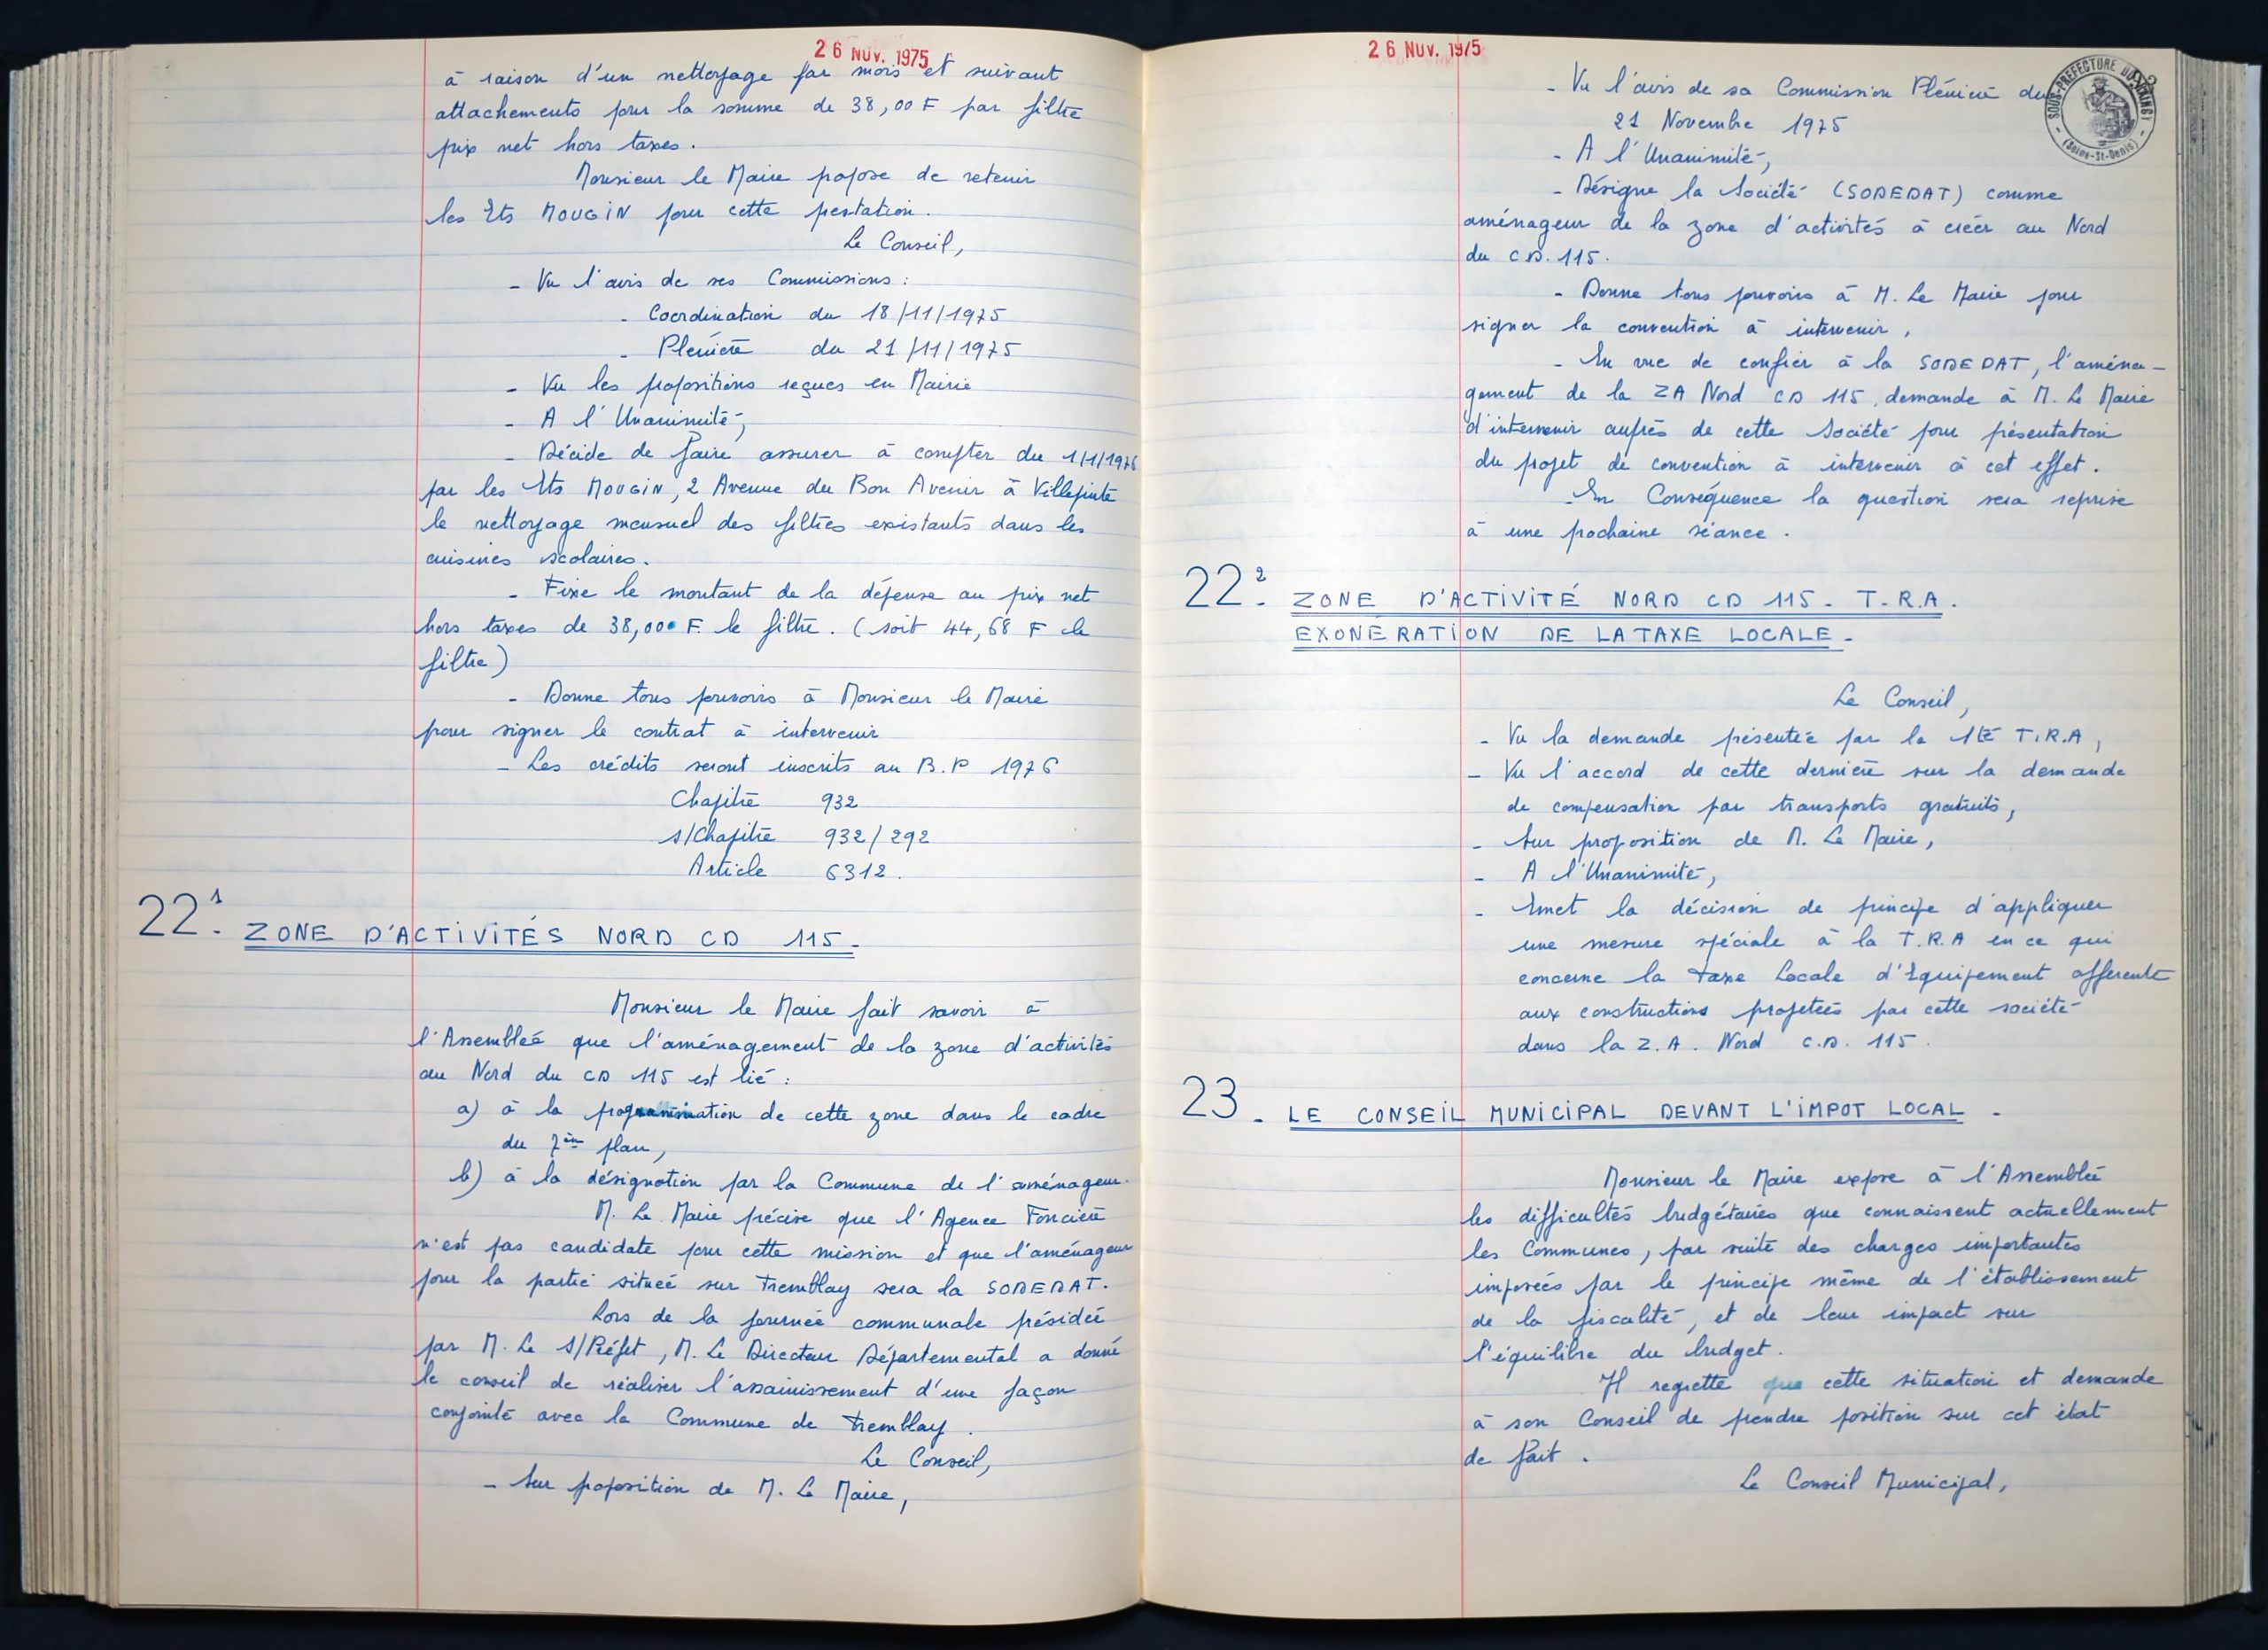 26 NOV. 1975
à raison d'un nettoyage par mois et suivant
attachements pour la somme de 38,00 F par filtre
prix net hors taxes.
Monsieur le Maire propose de retenir
les Ets MOUGIN pour cette prestation.
Le Conseil,
- Vu l'avis de ses Commissions :
- Coordination du 18/11/1975
- Plénière du 21/11/1975
- Vu les propositions reçues en Mairie
- A l'Unanimité,
- Décide de faire assurer à compter du 1/1/1976
par les Ets MOUGIN, 2 Avenue du Bon Avenir à Villepinte
le nettoyage mensuel des filtres existants dans les
cuisines scolaires.
- Fixe le montant de la dépense au prix net
hors taxes de 38,00 F le filtre. (soit 44,68 F le
filtre)
- Donne tous pouvoirs à Monsieur le Maire
pour signer le contrat à intervenir
- Les crédits seront inscrits au B.P 1976
Chapitre 932
s/Chapitre 932/292
Article 6312.
22.1 ZONE D'ACTIVITÉS NORD CD 115.
Monsieur le Maire fait savoir à
l'Assemblée que l'aménagement de la zone d'activités
au Nord du CD 115 est lié :
a) à la programmation de cette zone dans le cadre
du 7ème plan,
b) à la désignation par la Commune de l'aménageur.
M. Le Maire précise que l'Agence Foncière
n'est pas candidate pour cette mission et que l'aménageur
pour la partie située sur Tremblay sera la SODEDAT.
Lors de la journée communale présidée
par M. Le S/Préfet, M. Le Directeur Départemental a donné
le conseil de réaliser l'assainissement d'une façon
conjointe avec la Commune de Tremblay.
Le Conseil,
- Sur proposition de M. Le Maire,
26 NOV. 1975
SOUS-PREFECTURE DU RAINCY
(Seine-St-Denis)
- Vu l'avis de sa Commission Plénière du
21 Novembre 1975
- A l'Unanimité,
- Désigne la Société (SODEDAT) comme
aménageur de la zone d'activités à créer au Nord
du C.D. 115.
- Donne tous pouvoirs à M. Le Maire pour
signer la convention à intervenir,
- En vue de confier à la SODEDAT, l'aména-
gement de la ZA Nord CD 115, demande à M. Le Maire
d'intervenir auprès de cette Société pour présentation
du projet de convention à intervenir à cet effet.
- En Conséquence la question sera reprise
à une prochaine séance.
22.2 ZONE D'ACTIVITÉ NORD CD 115. T.R.A.
EXONÉRATION DE LA TAXE LOCALE.
Le Conseil,
- Vu la demande présentée par la Sté T.R.A,
- Vu l'accord de cette dernière sur la demande
de compensation par transports gratuits,
- Sur proposition de M. Le Maire,
- A l'Unanimité,
- Emet la décision de principe d'appliquer
une mesure spéciale à la T.R.A en ce qui
concerne la taxe Locale d'Equipement afferente
aux constructions projetées par cette société
dans la Z.A. Nord C.D. 115.
23. LE CONSEIL MUNICIPAL DEVANT L'IMPOT LOCAL.
Monsieur le Maire expose à l'Assemblée
les difficultés budgétaires que connaissent actuellement
les Communes, par suite des charges importantes
imposées par le principe même de l'établissement
de la fiscalité, et de leur impact sur
l'équilibre du budget.
Il regrette que cette situation et demande
à son Conseil de prendre position sur cet état
de fait.
Le Conseil Municipal,